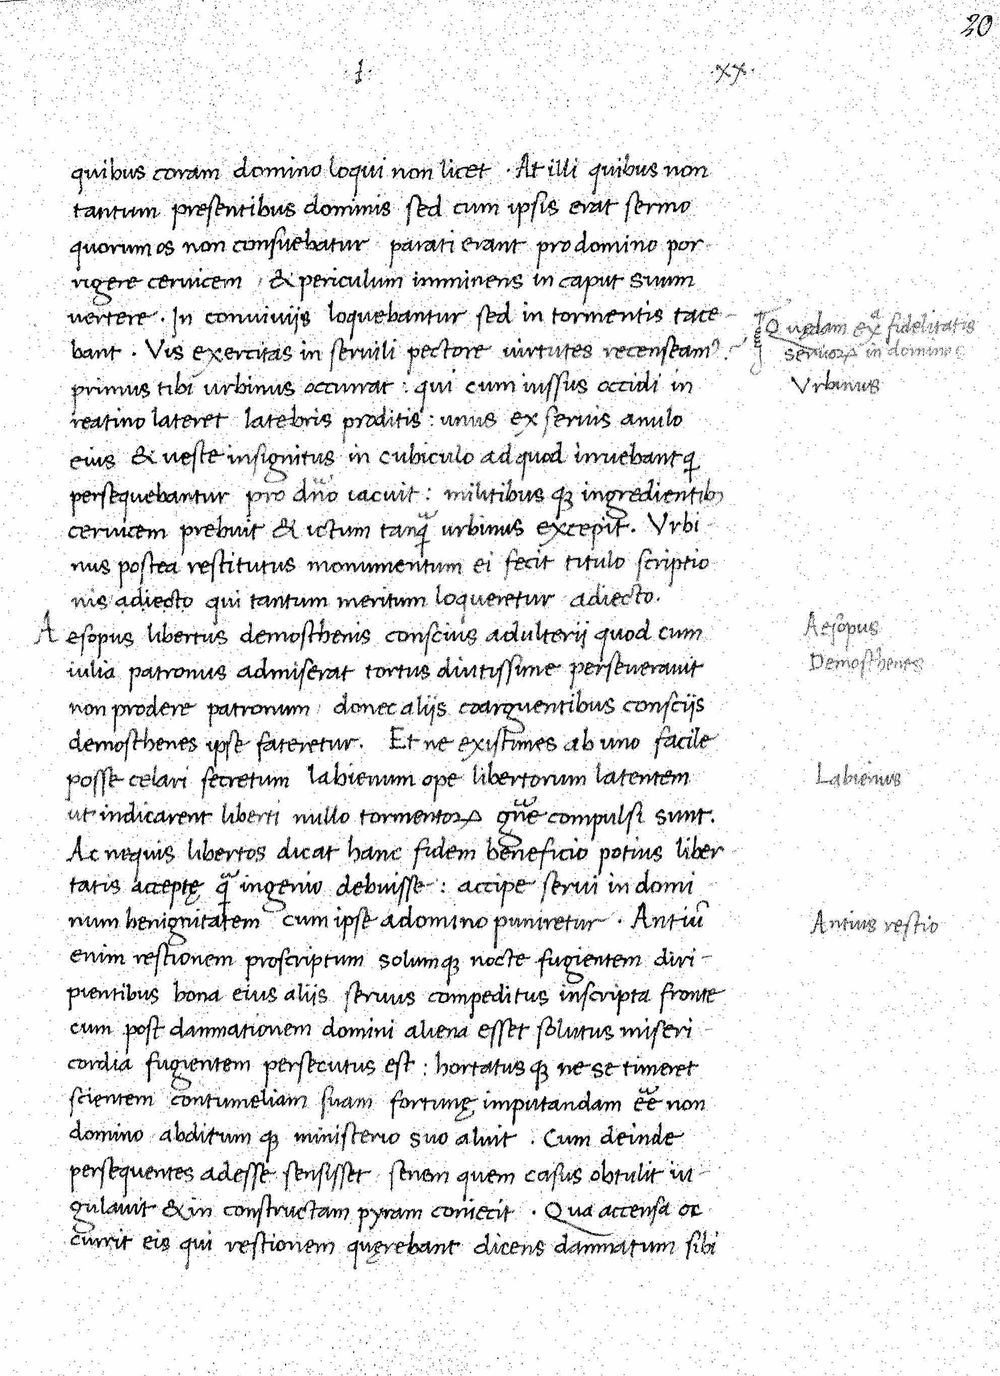 20
·I·
·xx·
quibus coram domino loqui non licet · At illi quibus non
tantum presentibus dominis sed cum ipsis erat sermo
quorum os non consuebatur parati erant pro domino por
rigere cervicem , & periculum imminens in caput suum
vertere · In conviviis loquebantur sed in tormentis tace
bant · Vis exercitas in servili pectore virtutes recenseam?
Quedam exa fidelitatis
servorꝝ in dominos
primus tibi urbinus occurrat : qui cum iussus occidi in
Vrbinus
reatino lateret latebris proditis : unus ex servis anulo
eius & veste insignitus in cubiculo ad quod irruebant q
persequebantur pro dn̄o iacuit : militibus qꝫ ingredientibꝫ
cervicem prebuit & ictum tanq̄ urbinus excepit. Vrbi
nus postea restitutus monumentum ei fecit titulo scriptio
nis adiecto qui tantum meritum loqueretur adiecto.
Aesopus libertus demosthenis conscius adulterij quod cum
Aesopus
iulia patronus admiserat tortus diutissime perseveravit
Demosthenes
non prodere patronum donec aliis coarguentibus consciis
demosthenes ipse fateretur. Et ne existimes ab uno facile
posse celari secretum labienum ope libertorum latentem
Labienus
ut indicarent liberti nullo tormentoꝝ gn̄e compulsi sunt.
Ac nequis libertos dicat hanc fidem beneficio potius liber
tatis acceptę q̄ ingenio debuisse : accipe servi in domi
num benignitatem cum ipse a domino puniretur · Antiū
Antius restio
enim restionem proscriptum solumqꝫ nocte fugientem diri
pientibus bona eius aliis servus compeditus inscripta fronte
cum post damnationem domini aliena esset solutus miseri
cordia fugientem persecutus est : hortatus qꝫ ne se timeret
scientem contumeliam suam fortunę imputandam ēē non
domino abditum qꝫ ministerio suo aluit . Cum deinde
persequentes adesse sensisset senem quem casus obtulit iu
gulavit & in constructam pyram coniecit · Qua accensa oc
currit eis qui restionem quęrebant dicens damnatum sibi